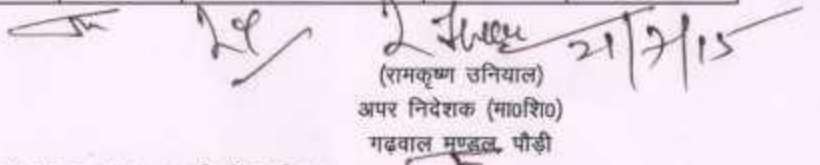 21/7/15
(रामकृष्ण उनियाल)
अपर निदेशक (मा0शि0)
गढ़वाल मण्डल, पौड़ी